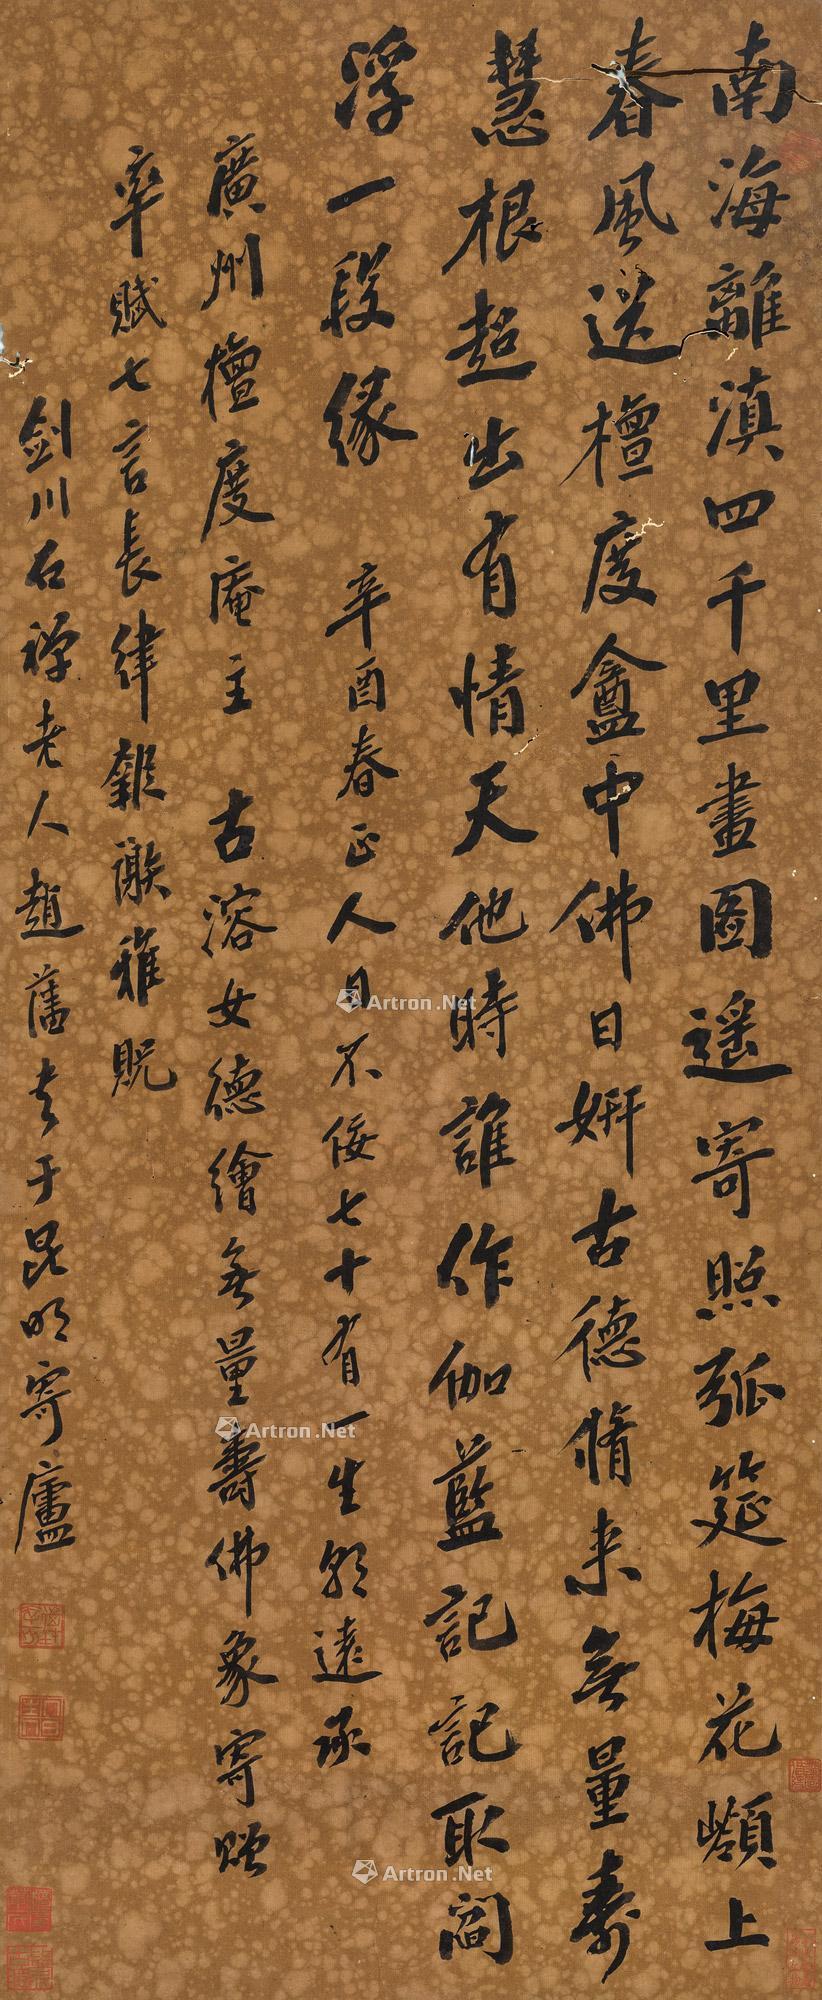 南海離滇四千里畫圖遥寄照弧筵梅花嶺上
春風送檀度龕中佛日妍古德脩来無量壽
慧根超出有情天他時誰作伽藍記記取閻
浮一段緣 辛酉春正人日不佞七十有一生朝遠承
廣州檀度庵主 古溶女德繪無量壽佛象寄贈
率賦七言長律報謝雅貺
劍川石禪老人趙藩書于昆明寄廬
Artron.Net
Artron.Net
Artron.Net